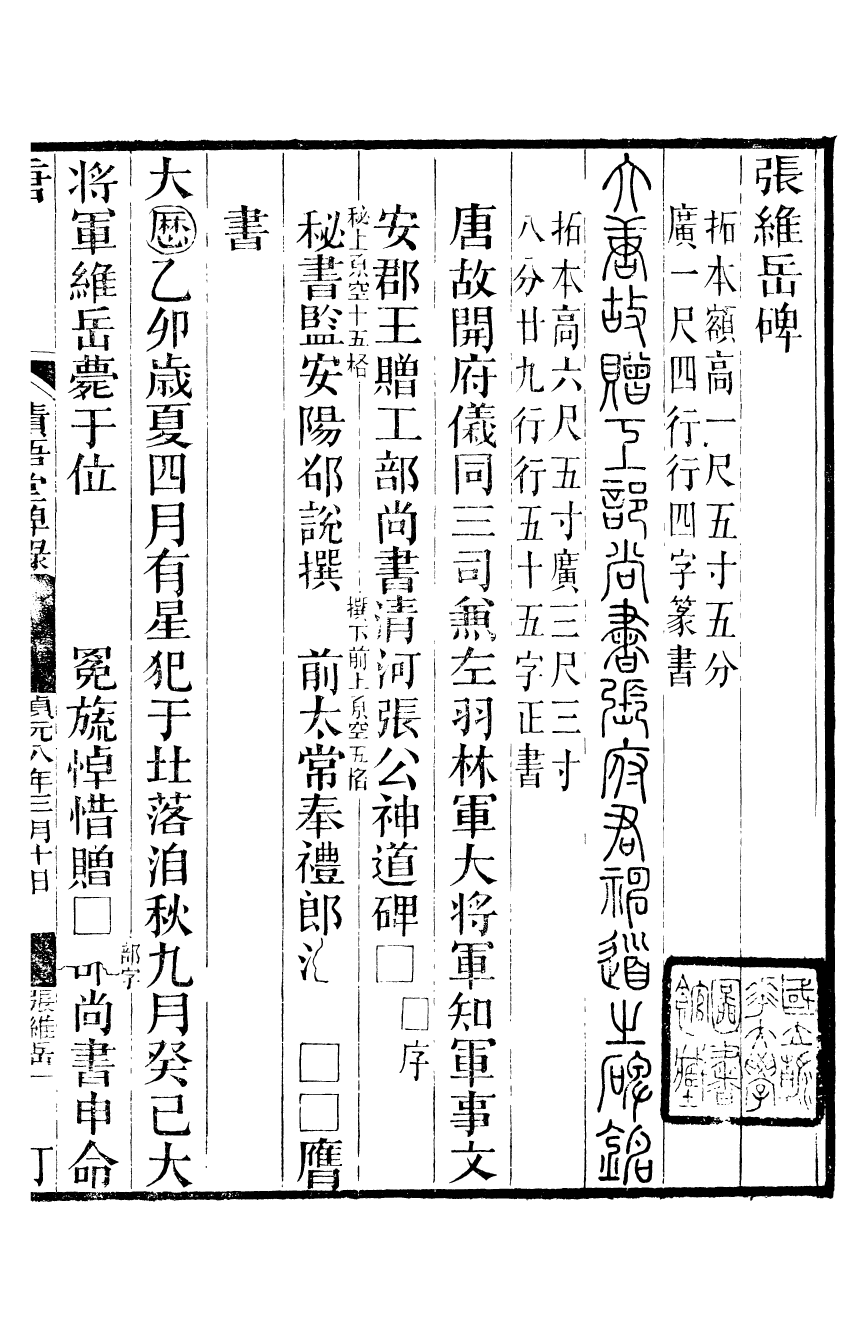 張維岳碑
拓本額高一尺五寸五分
廣一尺四行行四字篆書
大唐故贈工部尚書張府君神道之碑銘
拓本高六尺五寸廣三尺三寸
八分廿九行行五十五字正書
唐故開府儀同三司兼左羽林軍大將軍知軍事文
□序
安郡王贈工部尚書清河張公神道碑□
秘上原空十五格
撰下前上原空五格
秘書監安陽邵說撰 前太常奉禮郎 □□膺
書
大歷乙卯歲夏四月有星犯于壯落洎秋九月癸己大
部字
將軍維岳薨于位 冕旒悼惜贈□ 尚書申命
唐 責吾堂 錄 貞元八年三月十日 張維岳一 丁
國立清華大學圖書館藏